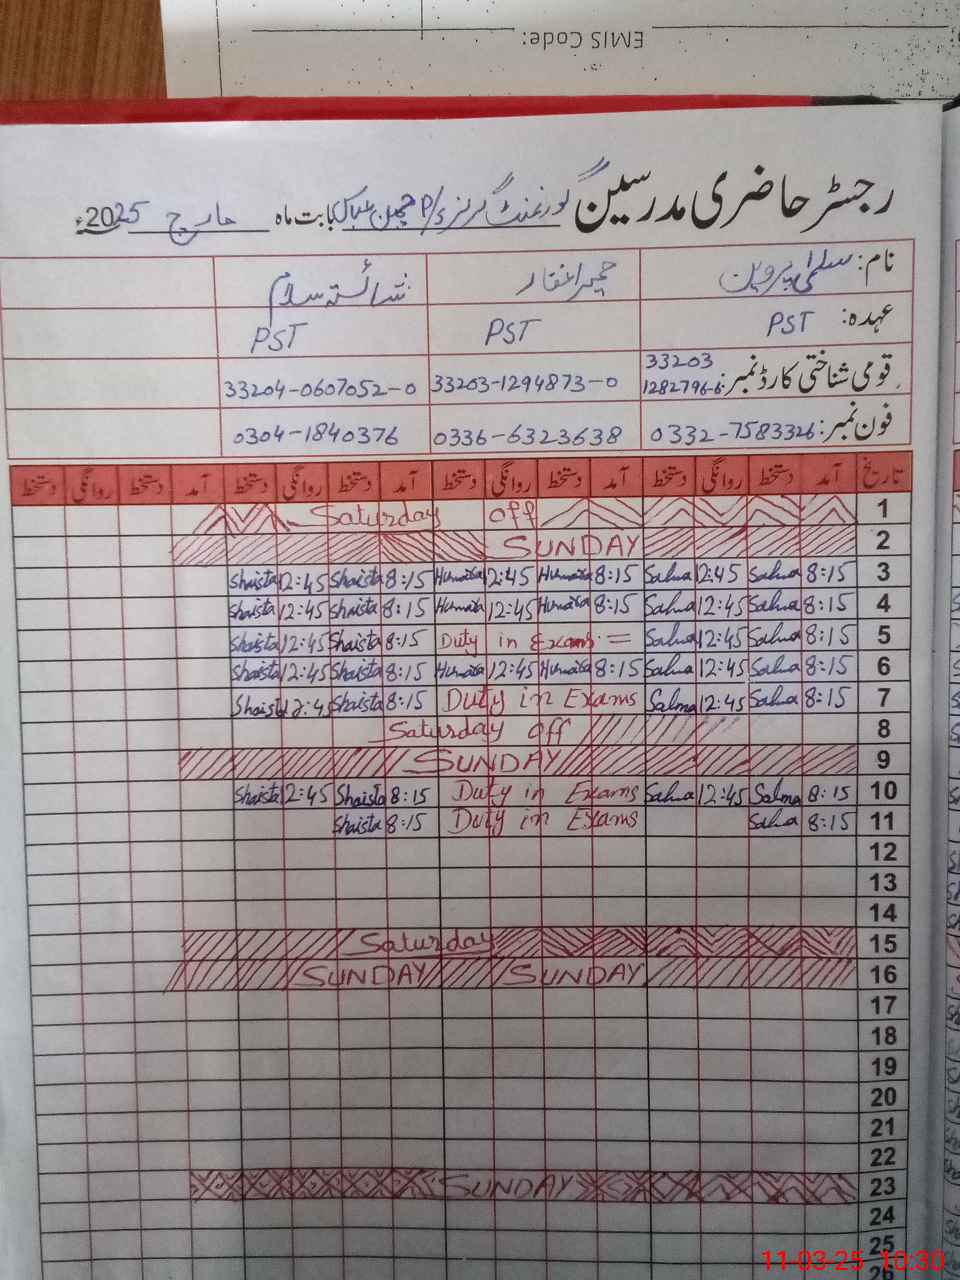 EMIS Code:
رجسٹر حاضری مدرسین گورنمنٹ گرلز P/S بابت ماہ مارچ 2025ء
نام: سلمیٰ پروین حمیرا شائستہ سلام
عہدہ: PST PST PST
قومی شناختی کارڈ نمبر: 33203 1282796-6 33203-1294873-0 33204-0607052-0
فون نمبر: 0332-7583326 0336-6323638 0304-1840376
تاریخ آمد دستخط روانگی دستخط آمد دستخط روانگی دستخط آمد دستخط روانگی دستخط آمد دستخط روانگی دستخط
1 Saturday off
2 SUNDAY
3 8:15 Salma 12:45 Salma 8:15 Humaira 12:45 Humaira 8:15 Shaista 12:45 Shaista
4 8:15 Salma 12:45 Salma 8:15 Humaira 12:45 Humaira 8:15 Shaista 12:45 Shaista
5 8:15 Salma 12:45 Salma Duty in Exams = 8:15 Shaista 12:45 Shaista
6 8:15 Salma 12:45 Salma 8:15 Humaira 12:45 Humaira 8:15 Shaista 12:45 Shaista
7 8:15 Salma 12:45 Salma Duty in Exams 8:15 Shaista 12:45 Shaista
8 Saturday off
9 SUNDAY
10 8:15 Salma 12:45 Salma Duty in Exams 8:15 Shaista 12:45 Shaista
11 8:15 Salma Duty in Exams 8:15 Shaista
12
13
14
15 Saturday
16 SUNDAY SUNDAY
17
18
19
20
21
22
23 SUNDAY
24
25
26
11-03-25 10:30